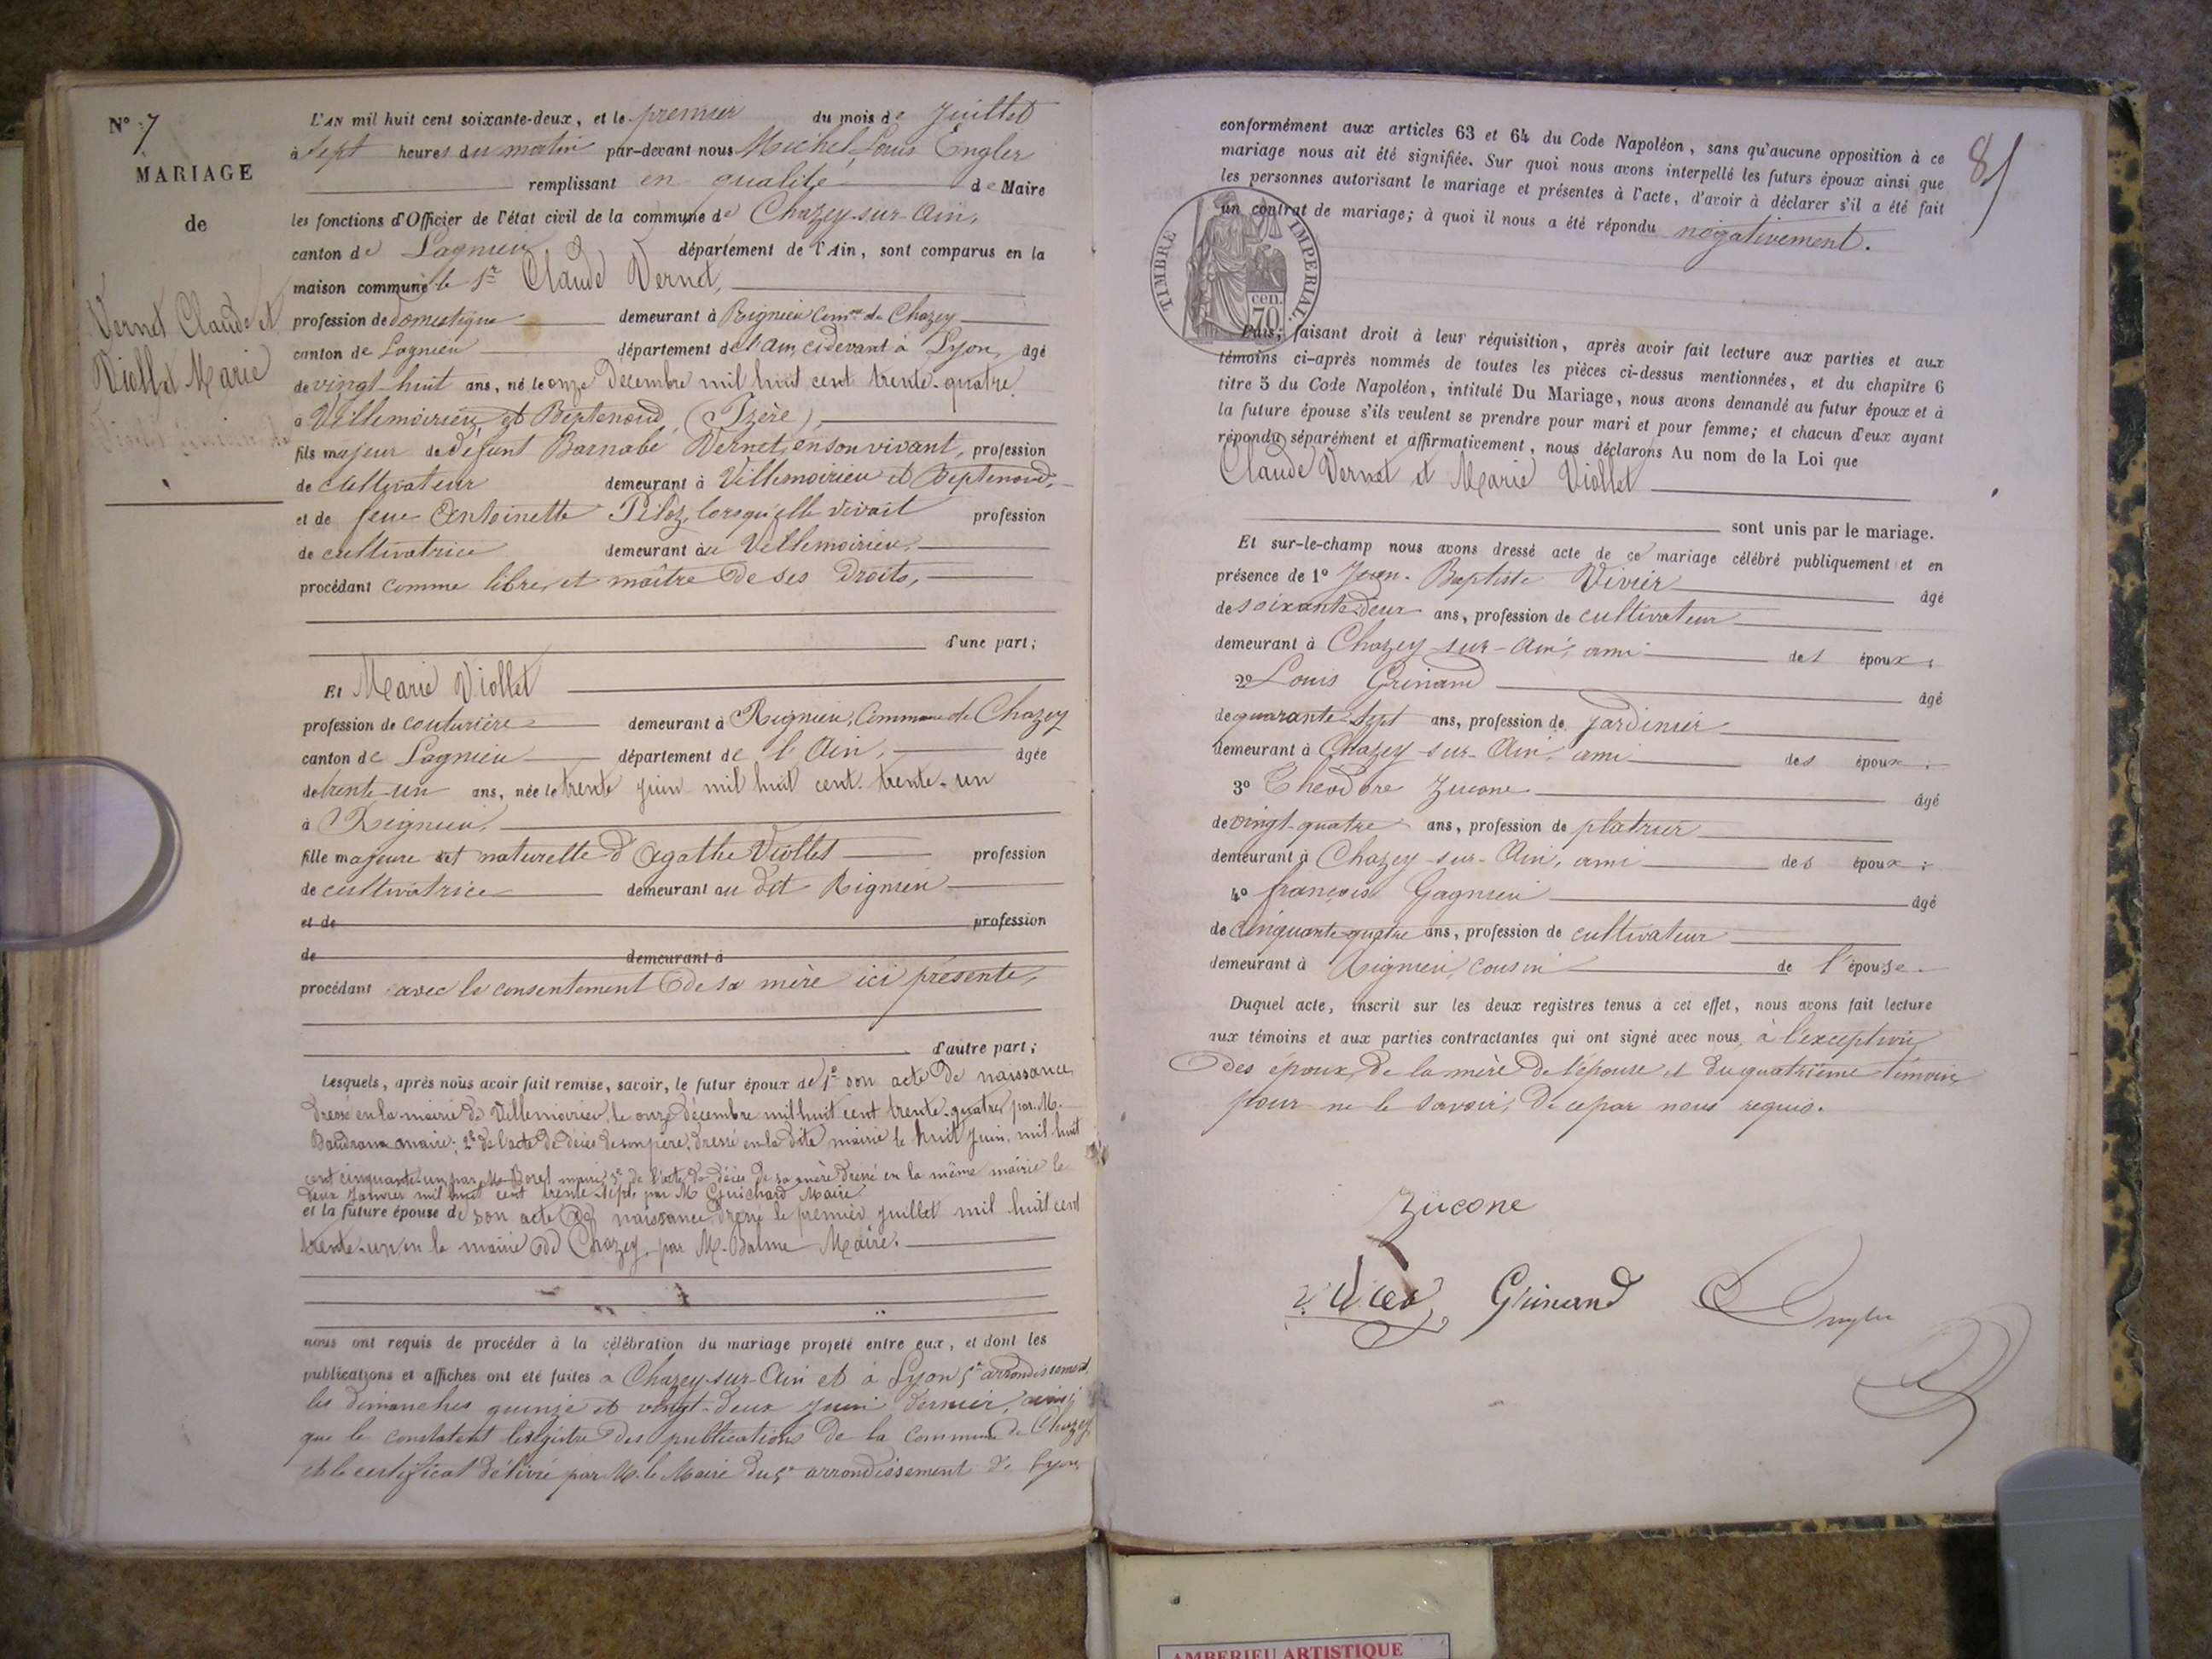 N° 7
MARIAGE
de
Vernet Claude et
Viollet Marie
L'AN mil huit cent soixante-deux, et le premier du mois de Juillet
à Sept heures du matin par-devant nous Michel Louis Engler
remplissant en qualité de Maire
les fonctions d'Officier de l'état civil de la commune de Chazey-sur-Ain,
canton de Lagnieu département de l'Ain, sont comparus en la
maison commune le Sr Claude Vernet,
profession de domestique demeurant à Rignieu Comne de Chazey
canton de Lagnieu département de l'Ain, cidevant à Lyon, âgé
de vingt-huit ans, né le onze Décembre mil huit cent trente-quatre
à Villemoirieu et Beptenoud, (Izère),
fils majeur de défunt Barnabé Vernet, en son vivant, profession
de cultivateur demeurant à Villemoirieu et Beptenoud,
et de feue Antoinette Piloz, lorsqu'elle vivait profession
de cultivatrice demeurant au Villemoirieu,
procédant comme libre et maître de ses droits,
d'une part;
Et Marie Viollet
profession de couturière demeurant à Rignieu, Commune de Chazey
canton de Lagnieu département de l'Ain, âgée
de trente-un ans, née le trente juin mil huit cent trente-un
à Rignieu,
fille majeure et naturelle d'Agathe Viollet profession
de cultivatrice demeurant au dit Rignieu
et de profession
de demeurant à
procédant avec le consentement de sa mère ici présente,
d'autre part;
Lesquels, après nous avoir fait remise, savoir, le futur époux de 1° son acte de naissance
dressé en la mairie de Villemoirieu, le onze décembre mil huit cent trente-quatre, par M.
Baudrana maire; 2° de l'acte de décès de son père, dressé en la dite mairie le huit Juin mil huit
cent cinquante-un par M. Borel maire; 3° de l'acte de décès de sa mère dressé en la même mairie le
deux Janvier mil huit cent trente-sept, par M Guichard Maire
et la future épouse de son acte de naissance, dressé le premier juillet mil huit cent
trente-un en la mairie de Chazey, par M. Balme Maire.
nous ont requis de procéder à la célébration du mariage projeté entre eux, et dont les
publications et affiches ont été faites à Chazey-sur-Ain et à Lyon 5e arrondissement,
les dimanches quinze et vingt-deux juin dernier, ainsi
que le constatent le registre des publications de la Commune de Chazey
et le certificat délivré par M. le Maire du 5e arrondissement de Lyon,
81
conformément aux articles 63 et 64 du Code Napoléon, sans qu'aucune opposition à ce
mariage nous ait été signifiée. Sur quoi nous avons interpellé les futurs époux ainsi que
les personnes autorisant le mariage et présentes à l'acte, d'avoir à déclarer s'il a été fait
un contrat de mariage; à quoi il nous a été répondu négativement.
TIMBRE IMPERIAL
cen.
70
Puis, faisant droit à leur réquisition, après avoir fait lecture aux parties et aux
témoins ci-après nommés de toutes les pièces ci-dessus mentionnées, et du chapitre 6
titre 5 du Code Napoléon, intitulé Du Mariage, nous avons demandé au futur époux et à
la future épouse s'ils veulent se prendre pour mari et pour femme; et chacun d'eux ayant
répondu séparément et affirmativement, nous déclarons Au nom de la Loi que
Claude Vernet et Marie Viollet
sont unis par le mariage.
Et sur-le-champ nous avons dressé acte de ce mariage célébré publiquement et en
présence de 1° Jean-Baptiste Vivier âgé
de soixante-deux ans, profession de cultivateur
demeurant à Chazey-sur-Ain, ami des époux;
2° Louis Grinand âgé
de quarante-sept ans, profession de jardinier
demeurant à Chazey-sur-Ain, ami des époux;
3° Théodore Zucone âgé
de vingt-quatre ans, profession de platrier
demeurant à Chazey-sur-Ain, ami des époux;
4° françois Gagnieu âgé
de cinquante-quatre ans, profession de cultivateur
demeurant à Rignieu, cousin de l'épouse.
Duquel acte, inscrit sur les deux registres tenus à cet effet, nous avons fait lecture
aux témoins et aux parties contractantes qui ont signé avec nous, à l'exception
des époux, de la mère de l'épouse et du quatrième témoin
pour ne le savoir, de ce par nous requis.
Zucone
Grinand
Engler
AMBERIEU ARTISTIQUE